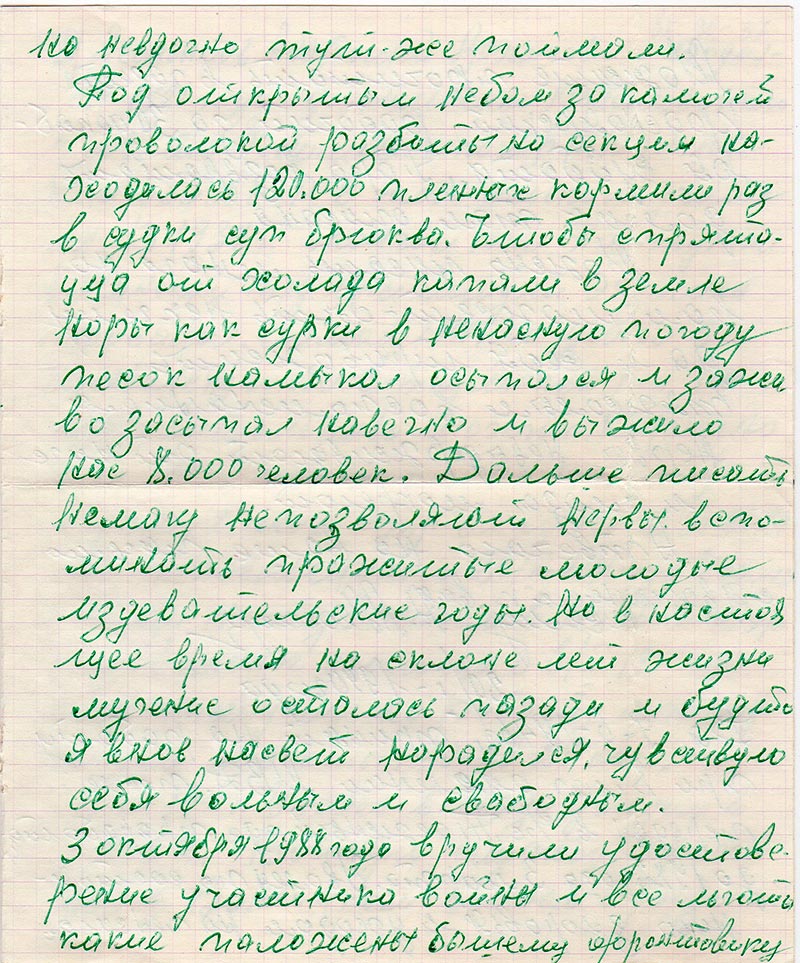 но невдочно тут-же поймали.
Под открытым небом за колючей
проволокой разбиты на секции на-
ходилась 120.000 пленых кормили раз
в судки суп брюква. Чтобы спрята-
цца от холада капали в земле
норы как сурки в неносную погоду
песок намыкал осыпался и зажи
во засыпал навечно и выжило
нас 8.000 человек. Дальше писать
немагу непозволяют нервы вспо-
минать пражитые молодые
издевательские годы. Но в настоя
щее время на склоне лет жизни
мучение осталась пазади и будто
я внов насвет народился, чувствую
себя вольным и свабодным.
3 октября 1988 года вручили удостове-
рение участника войны и все льготы
какие паложены бывшему фронтовику